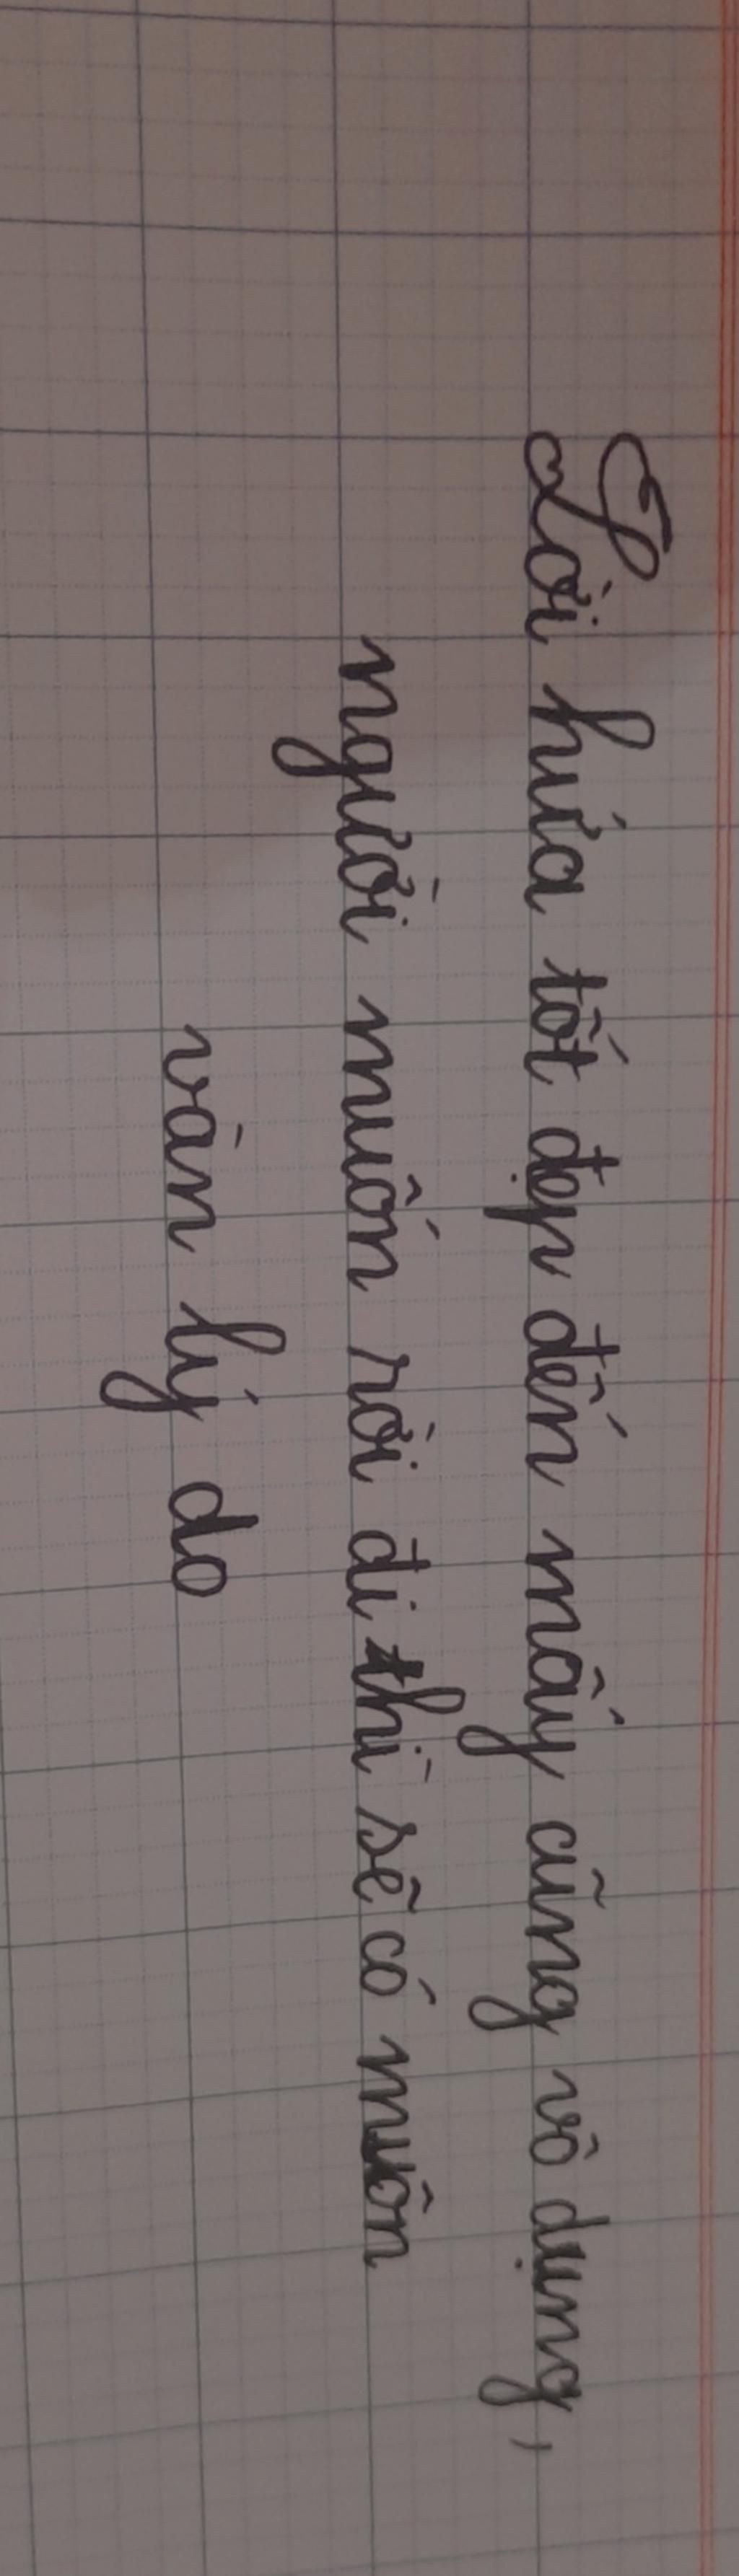 Lời hứa tốt đẹp đến mấy cũng vô dụng,
người muốn rời đi thì sẽ có muôn
vàn lý do